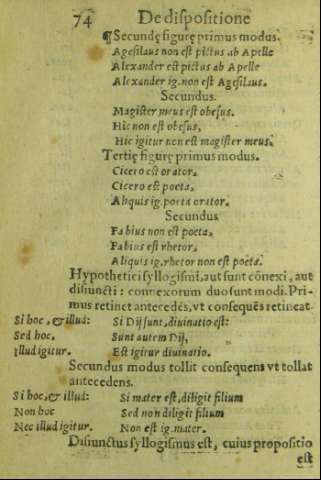 74 De dispositione
¶Secundę figurę primus modus.
Agesilaus non est pictus ab Apelle
Alexander est pictus ab Apelle
Alexander ig. non est Agesilaus.
Secundus.
Magister meus est obesus.
Hic non est obesus,
Hic igitur non est magister meus.
Tertię figurę primus modus.
Cicero est orator.
Cicero est poeta,
Aliquis ig. poeta orator.
Secundus
Fabius non est poeta,
Fabius est rhetor,
Aliquis ig. rhetor non est poeta.
Hypothetici syllogismi, aut sunt cõnexi, aut
disiuncti: connexorum duo sunt modi. Pri-
mus retinet antecedẽs, vt consequẽs retineat.
Si hoc, & illud: Si Dij sunt, diuinatio est:
Sed hoc, Sunt autem Dij,
Illud igitur. Est igitur diuinatio.
Secundus modus tollit consequens vt tollat
antecedens.
Si hoc, & illud: Si mater est, diligit filium
Non hoc Sed non diligit filium
Nec illud igitur. Non est ig. mater.
Disiunctus syllogismus est, cuius propositio
est